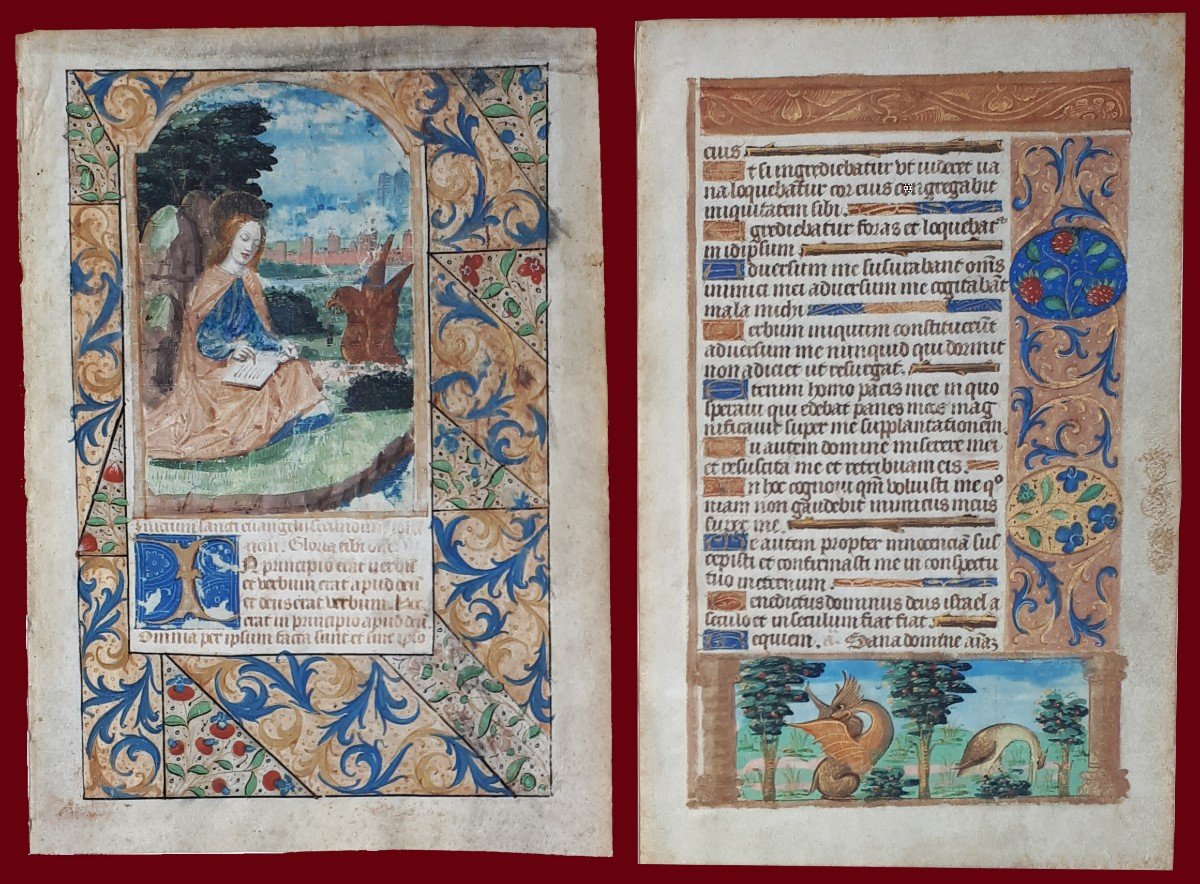 Inicium sancti euangelii secundum Iohā
nem. Gloria tibi dñe
IN principio erat uerbū
et verbum erat apud deū
et deus erat verbum. hoc
erat in principio apud deū.
Omnia per ipsum facta sunt et sine ipso
eius.
Et si ingrediebatur vt uideret ua
na loquebatur cor eius congregabit
iniquitatem sibi.
grediebatur foras et loquebat
in idipsum.
Aduersum me susurabant omēs
inimici mei aduersum me cogitabāt
mala michi.
Verbum iniquum constituerūt
aduersum me nunquid qui dormit
non adiciet ut resurgat.
Etenim homo pacis mee in quo
speraui qui edebat panes meos mag
nificauit super me supplantationem.
Tu autem domine miserere mei
et resuscita me et retribuam eis.
In hoc cognoui qm̄ voluisti me qº
niam non gaudebit inimicus meus
super me.
Me autem propter innocenciā sus
cepisti et confirmasti me in conspectu
tuo in eternum.
Benedictus dominus deus israel a
seculo et in seculum fiat fiat.
Requiem. a. Sana domine aīaz